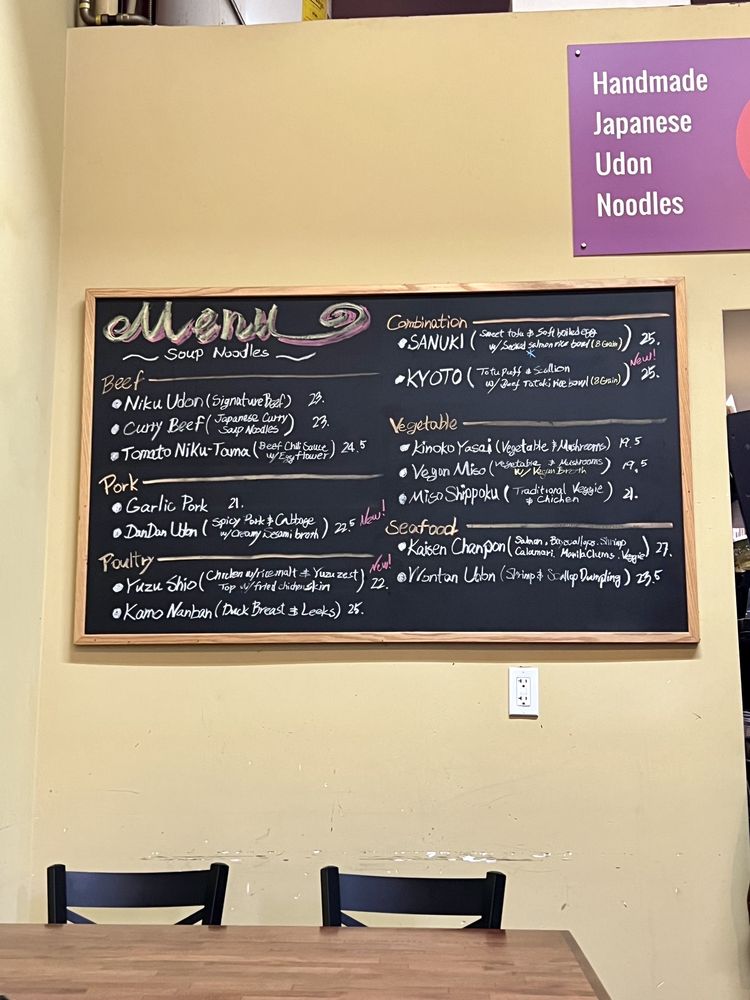 Handmade
Japanese
Udon
Noodles
Menu
Soup Noodles
Beef
Niku Udon (Signature Beef) 23.
Curry Beef (Japanese Curry
Soup Noodles) 23.
Tomato Niku-Tama (Beef Chili Sauce
w/ Egg flower) 24.5
Pork
Garlic Pork 21.
DanDan Udon (Spicy Pork & Cabbage
w/ Creamy Sesami broth) 22.5 New!
Poultry
Yuzu Shio (Chicken w/ rice malt & Yuzu zest
Top w/ fried chicken skin) 22. New!
Kamo Nanban (Duck Breast & Leeks) 25.
Combination
SANUKI (Sweet tofu & Soft boiled egg
w/ Smoked salmon rice bowl (8 Grain)) 25.
KYOTO (Tofu puff & Scallion
w/ Beef Tataki rice bowl (8 Grain)) 25. New!
Vegetable
Kinoko Yasai (Vegetable & Mushrooms) 19.5
Vegan Miso (Vegetable & Mushrooms
w/ Vegan Broth) 19.5
Miso Shippoku (Traditional Veggie
& Chicken) 21.
Seafood
Kaisen Chanpon (Salmon, Bay scallops, Shrimp
Calamari, Manila Clams, Veggie) 27.
Wontan Udon (Shrimp & Scallop Dumpling) 23.5